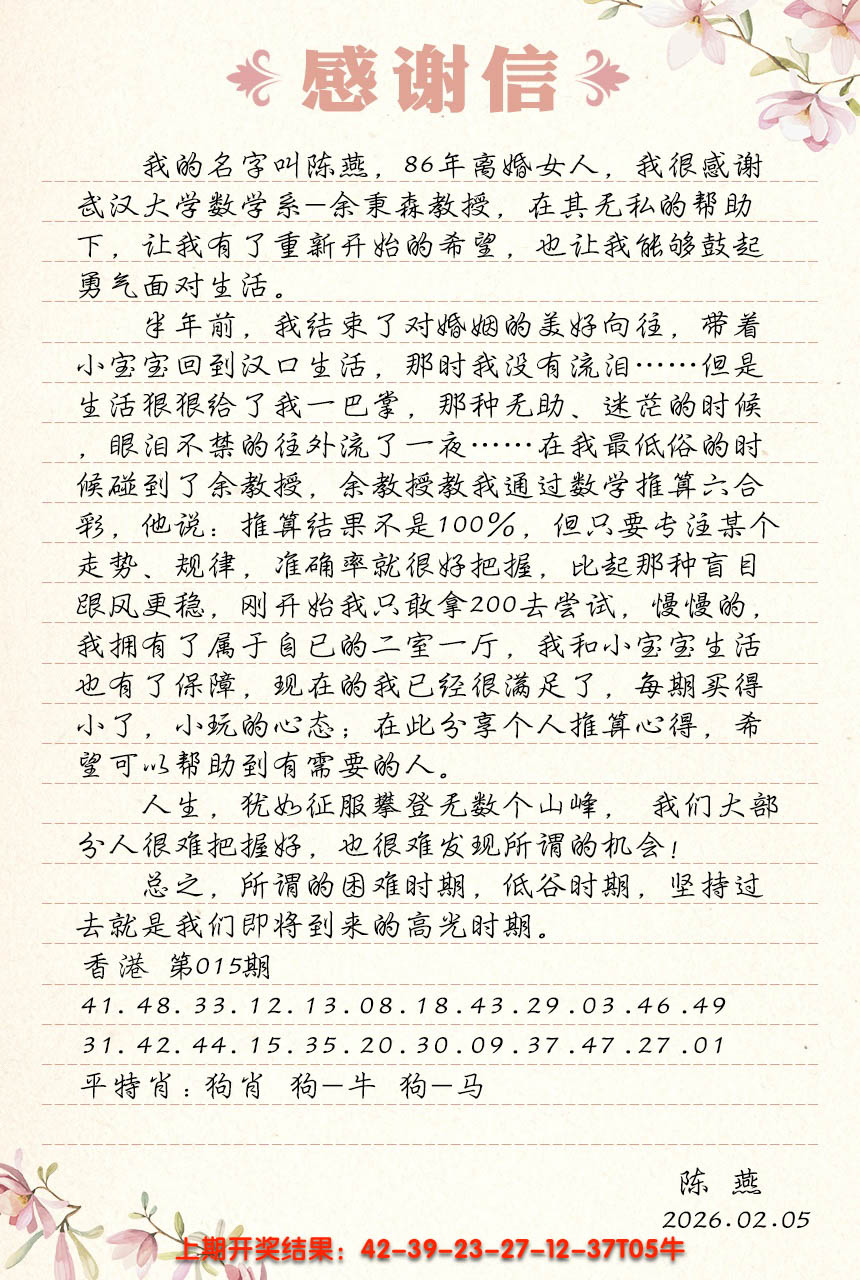 感谢信
我的名字叫陈燕，86年离婚女人，我很感谢
武汉大学数学系—余秉森教授，在其无私的帮助
下，让我有了重新开始的希望，也让我能够鼓起
勇气面对生活。
半年前，我结束了对婚姻的美好向往，带着
小宝宝回到汉口生活，那时我没有流泪……但是
生活狠狠给了我一巴掌，那种无助、迷茫的时候
，眼泪不禁的往外流了一夜……在我最低俗的时
候碰到了余教授，余教授教我通过数学推算六合
彩，他说：推算结果不是100%，但只要专注某个
走势、规律，准确率就很好把握，比起那种盲目
跟风更稳，刚开始我只敢拿200去尝试，慢慢的，
我拥有了属于自已的二室一厅，我和小宝宝生活
也有了保障，现在的我已经很满足了，每期买得
小了，小玩的心态；在此分享个人推算心得，希
望可以帮助到有需要的人。
人生，犹如征服攀登无数个山峰， 我们大部
分人很难把握好，也很难发现所谓的机会！
总之，所谓的困难时期，低谷时期，坚持过
去就是我们即将到来的高光时期。
香港 第015期
41.48.33.12.13.08.18.43.29.03.46.49
31.42.44.15.35.20.30.09.37.47.27.01
平特肖：狗肖 狗—牛 狗—马
陈 燕
2026.02.05
上期开奖结果：42-39-23-27-12-37T05牛